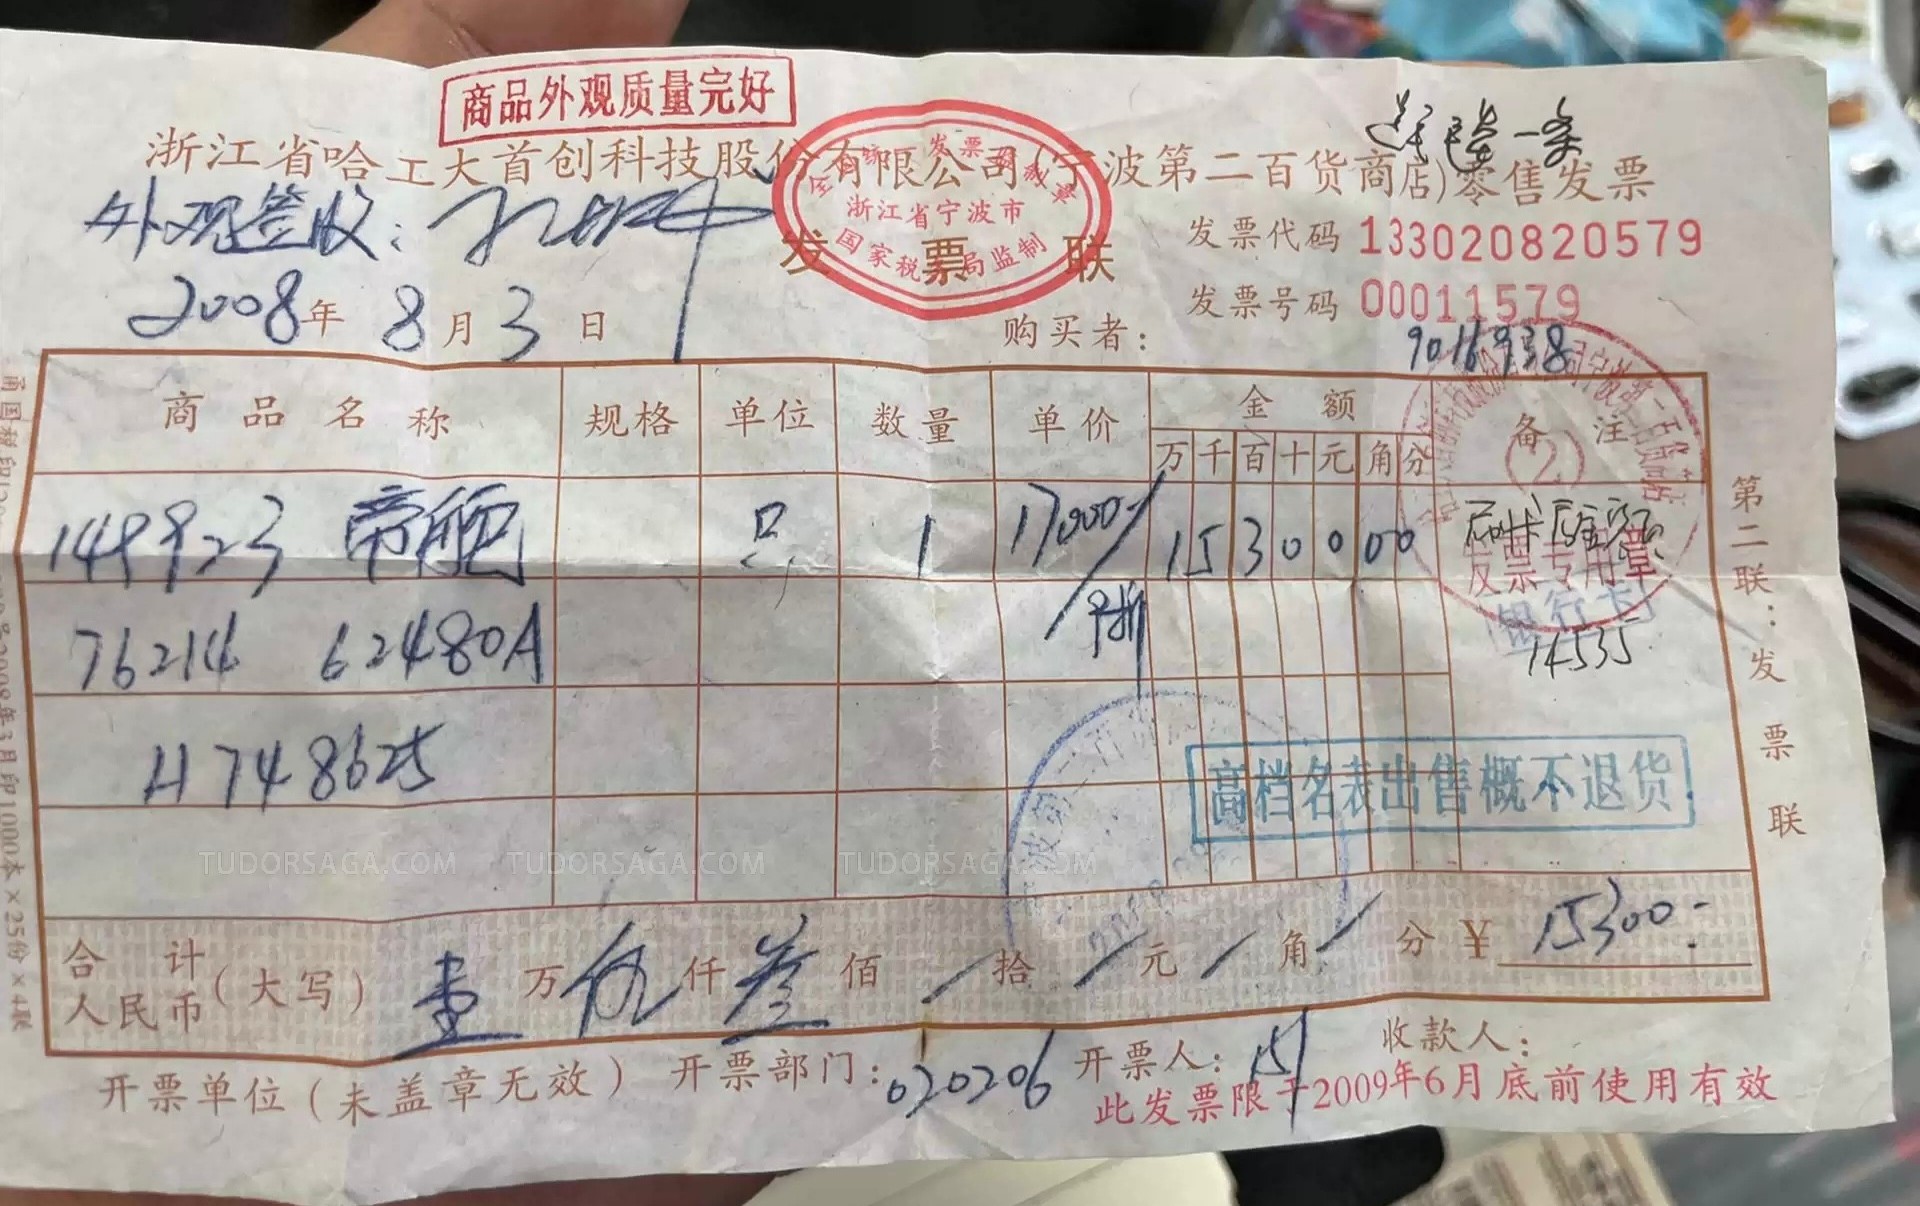 商品外观质量完好
浙江省哈工大首创科技股份有限公司(宁波第二百货商店)零售发票
一条
外观签收:
浙江省宁波市
国家税 局监制
发票联
发票代码 133020820579
发票号码 00011579
2008年 8月 3日
购买者:
9016938
商品名称 规格 单位 数量 单价 金额 备注
万 千 百 十 元 角 分
149923 帝舵 只 1 17000- 15300 00
(2)
发票专用章
银行卡
76214 62480A 9折
14535
H748625
高档名表出售概不退货
TUDORSAGA.COM TUDORSAGA.COM TUDORSAGA.COM
合计人民币(大写) 壹万伍仟叁佰 拾 元 角 分 ¥ 15300-
开票单位(未盖章无效) 开票部门:020206 开票人:151 收款人:
此发票限于2009年6月底前使用有效
第二联:发票联